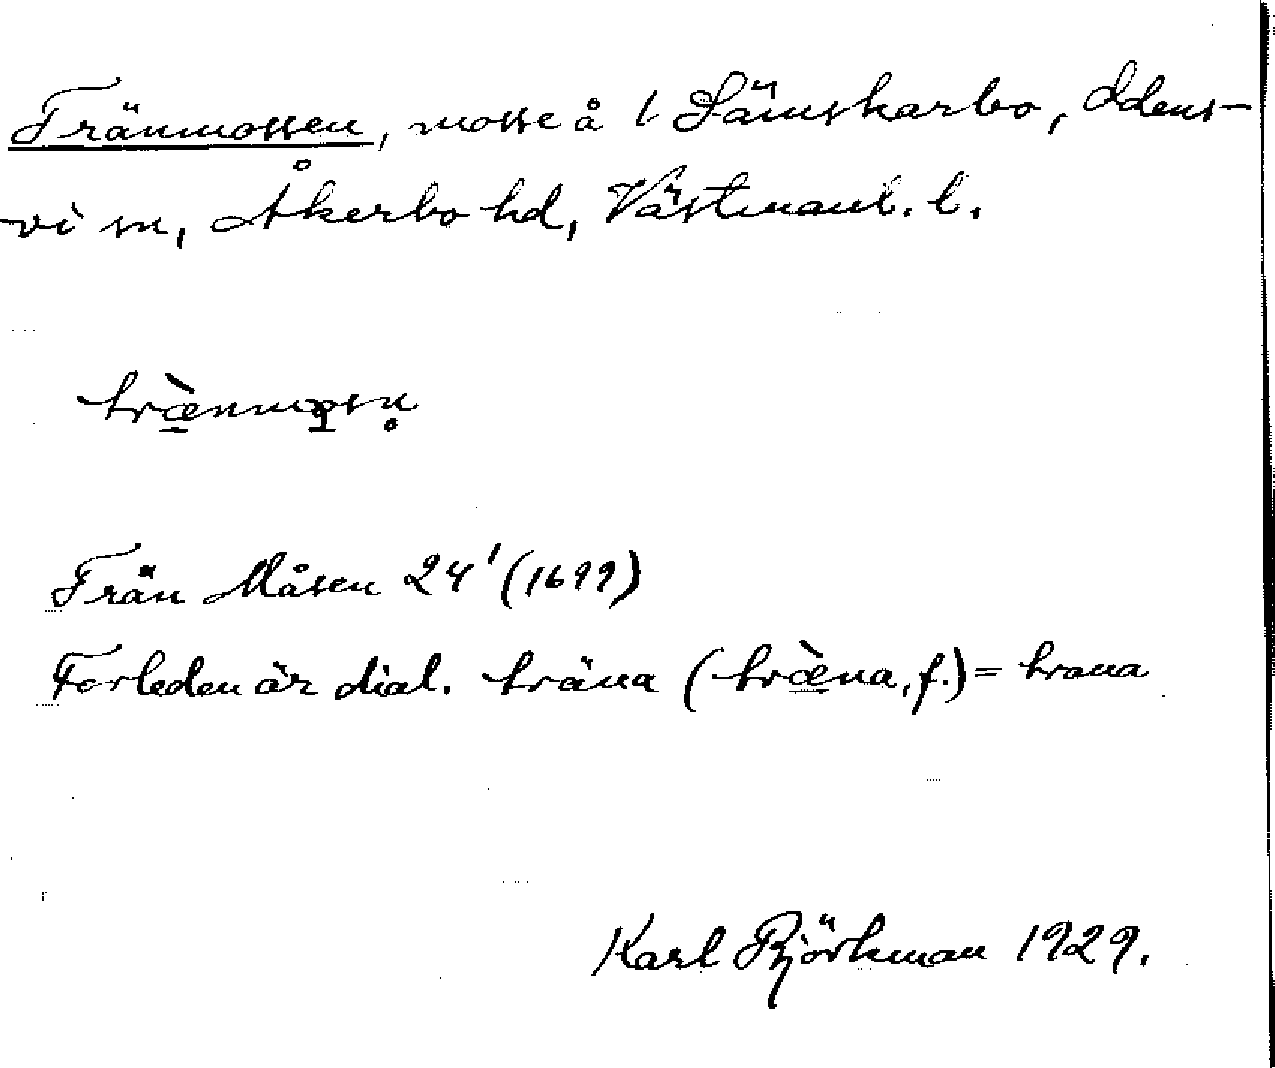 Tränmossen, mosse å 1 Sämskarbo, Odens-
vi sn, Åkerbo hd, Västmanl. l.
træ̀nmosn̥
Trän Måsen 24¹ (1699)
Förleden är dial. träna (træ̀na, f.) = trana
Karl Björkman 1929.